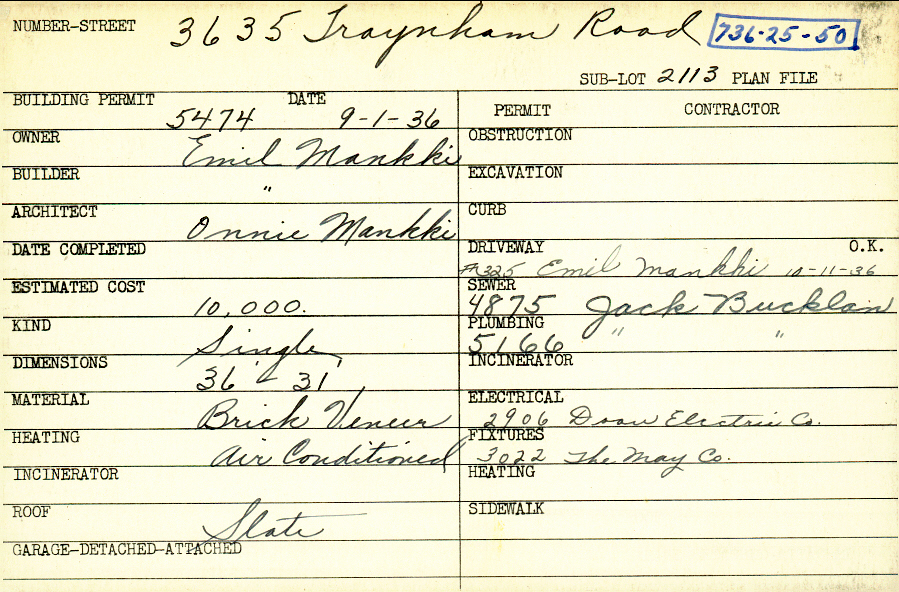 NUMBER-STREET 3635 Traynham Road 736-25-50
SUB-LOT 2113 PLAN FILE
BUILDING PERMIT 5474 DATE 9-1-36
OWNER Emil Mankki
BUILDER "
ARCHITECT Onnie Mankki
DATE COMPLETED
ESTIMATED COST 10,000.
KIND Single
DIMENSIONS 36 - 31
MATERIAL Brick Veneer
HEATING Air Conditioned
INCINERATOR
ROOF Slate
GARAGE-DETACHED-ATTACHED
PERMIT CONTRACTOR
OBSTRUCTION
EXCAVATION
CURB
DRIVEWAY O.K.
325 Emil Mankki 10-11-36
SEWER
4875 Jack Bucklan
PLUMBING
5166 " "
INCINERATOR
ELECTRICAL
2906 Electric Co.
FIXTURES
3022 The May Co.
HEATING
SIDEWALK